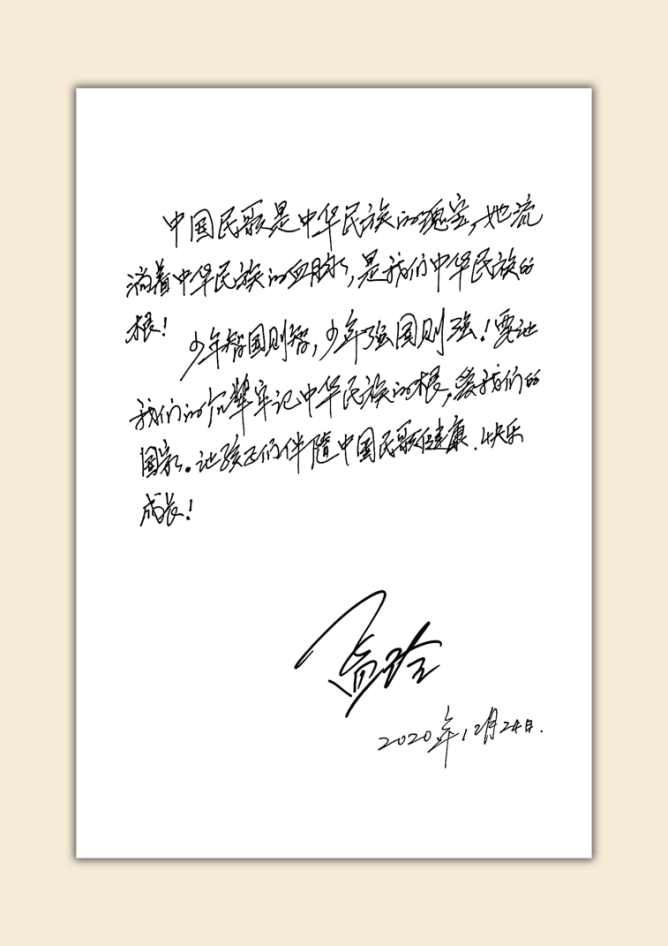 中国民歌是中华民族的瑰宝，她流
淌着中华民族的血脉，是我们中华民族的
根！
少年智国则智，少年强国则强！要让
我们的后辈牢记中华民族的根，爱我们的
国家。让孩子们伴随中国民歌健康、快乐
成长！
2020年12月24日.